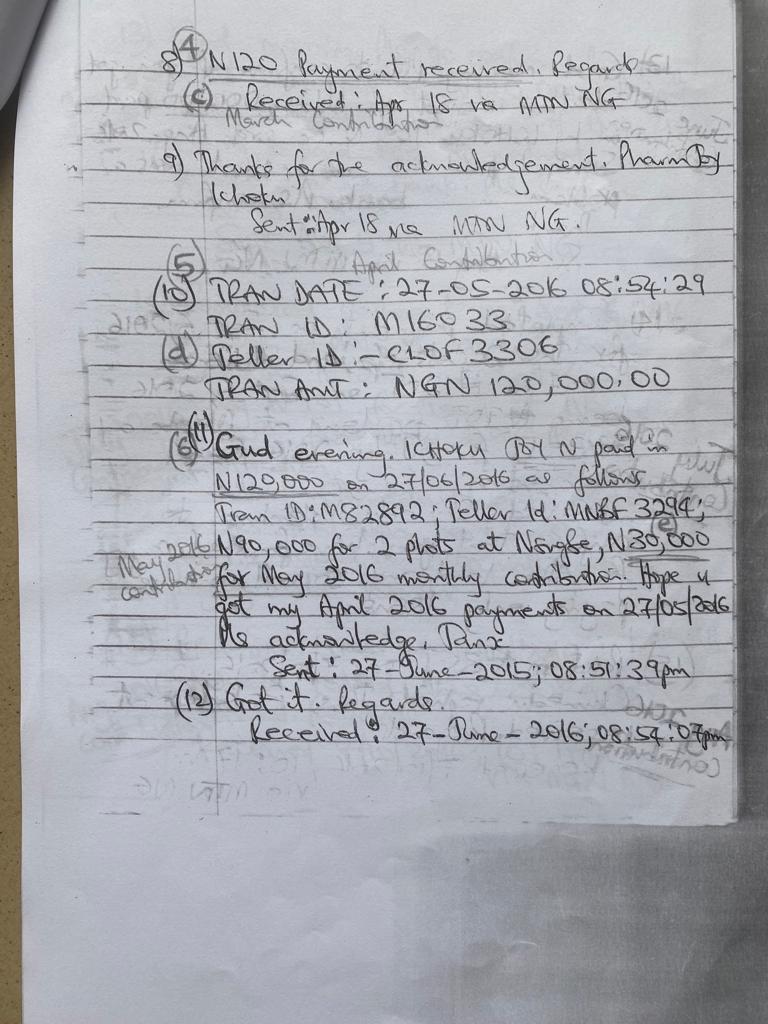 8) (4) N120 Payment received. Regards
(c) Received: Apr 18 via MTN NG
March Contribution
9) Thanks for the acknowledgement. Pharm BY
Ichoku
Sent: Apr 18 via MTN NG.
(5) April Contribution
(10) TRAN DATE : 27-05-2016 08:54:29
TRAN ID: M16033
(d) Teller ID:- CLOF3306
TRAN AMT: NGN 120,000.00
(6) (11) Gud evening. ICHOKU BY N paid in
N120,000 on 27/06/2016 as follows
Tran ID: M82892; Teller Id: MNBF3294;
(e)
May 2016 N90,000 for 2 plots at , N30,000
contribution for May 2016 monthly contribution. Hope u
got my April 2016 payments on 27/05/2016
Pls acknowledge. Tanx
Sent: 27-June-2015; 08:51:39pm
(12) Got it. Regards.
Received: 27-June-2016; 08:54:07pm